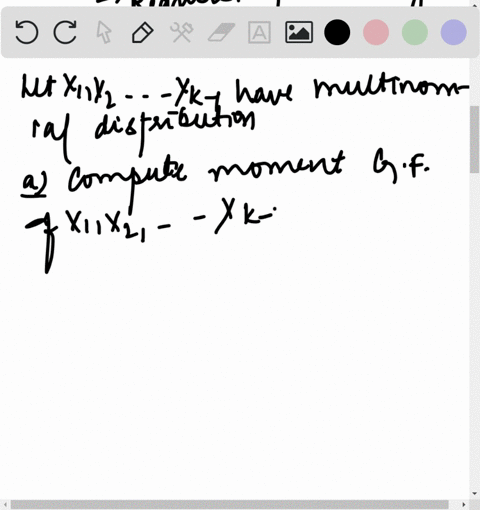 Let X1, X2 --- -Xk-1 have multinom-
ial distribution
a) Compute moment G.f.
of X1, X2, - - Xk-